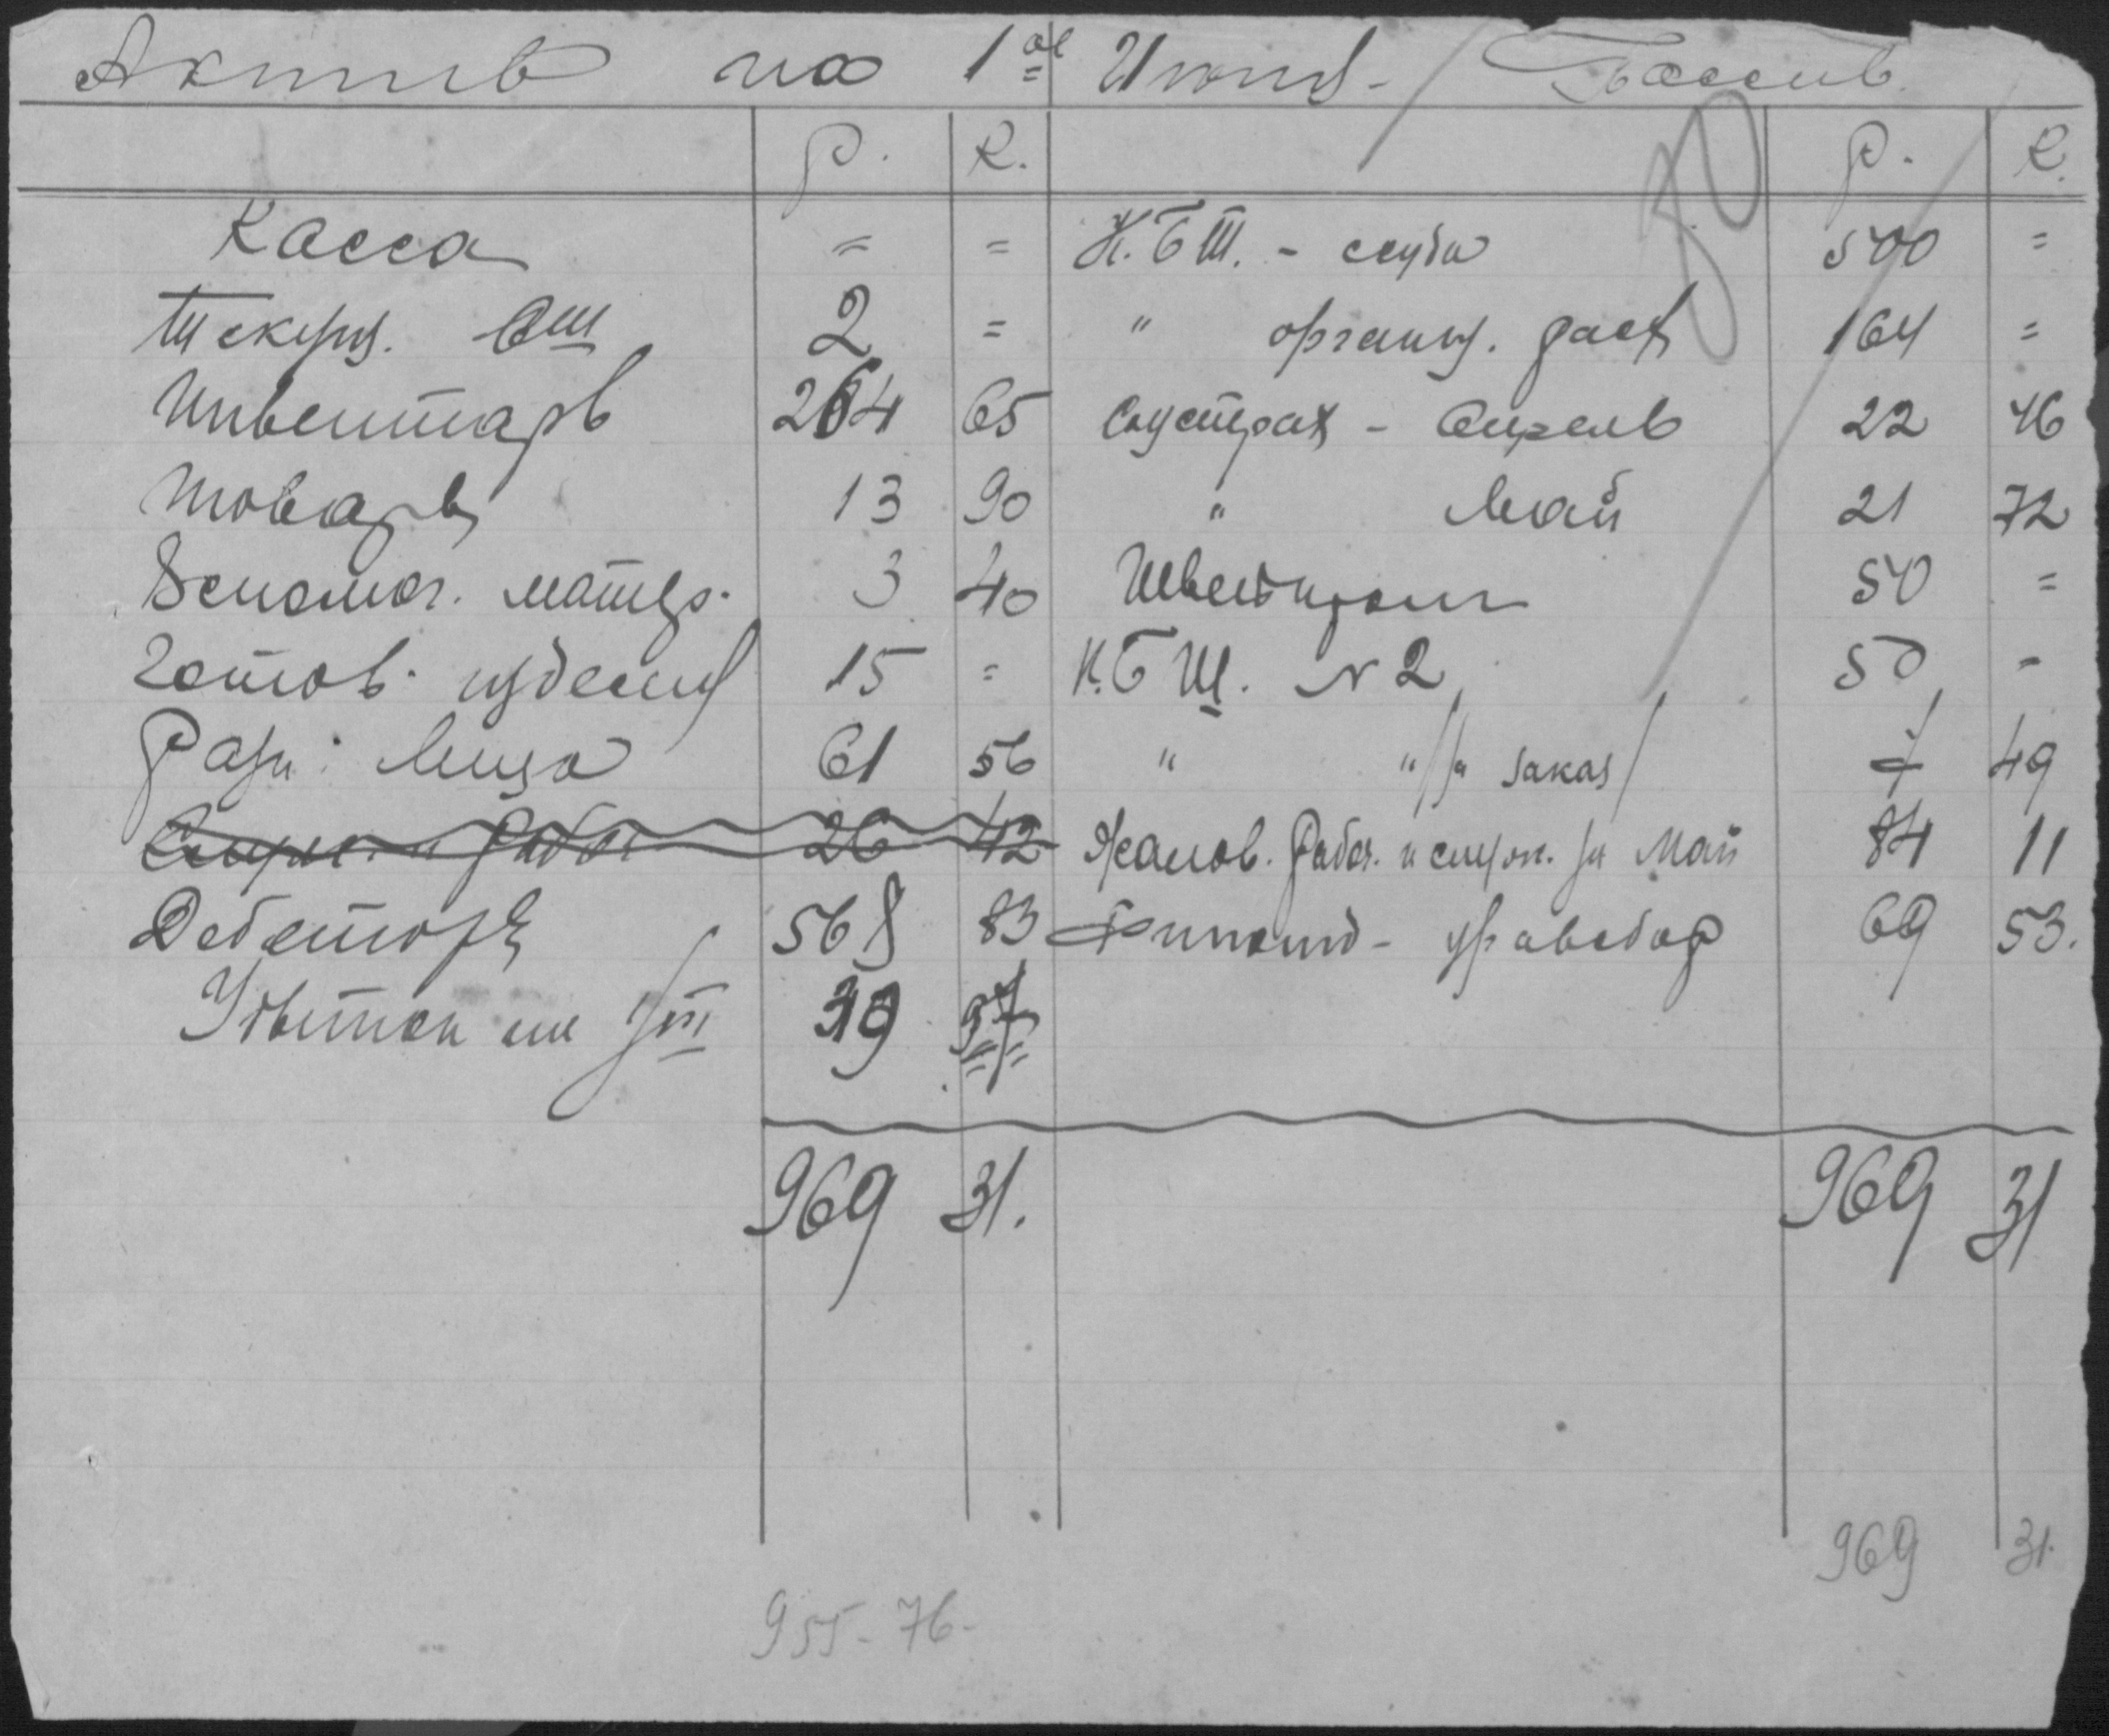 Актив на 1ое Июня - Пассив.
Р. К. Р. К.
Касса = = К.Б.Т. - ссуда 500 =
Текущ. сч 2 = " организ. расх 164 =
Инвентарь 264 65 Соцстрах - Апрель 22 46
Товары 13 90 " Май 21 72
Вспомог. матер. 3 40 Швейпром 50 =
Готов. изделия 15 = К.Б.Т. № 2 50 -
Разн: Лица 61 56 " " /за заказ/ 7 49
26 42 Жалов. Рабоч. и служ. за Май 84 11
Дебеторы 568 83 69 53.
Убыток 39 97
969 31. 969 31
969 31.
955 - 76 -
30